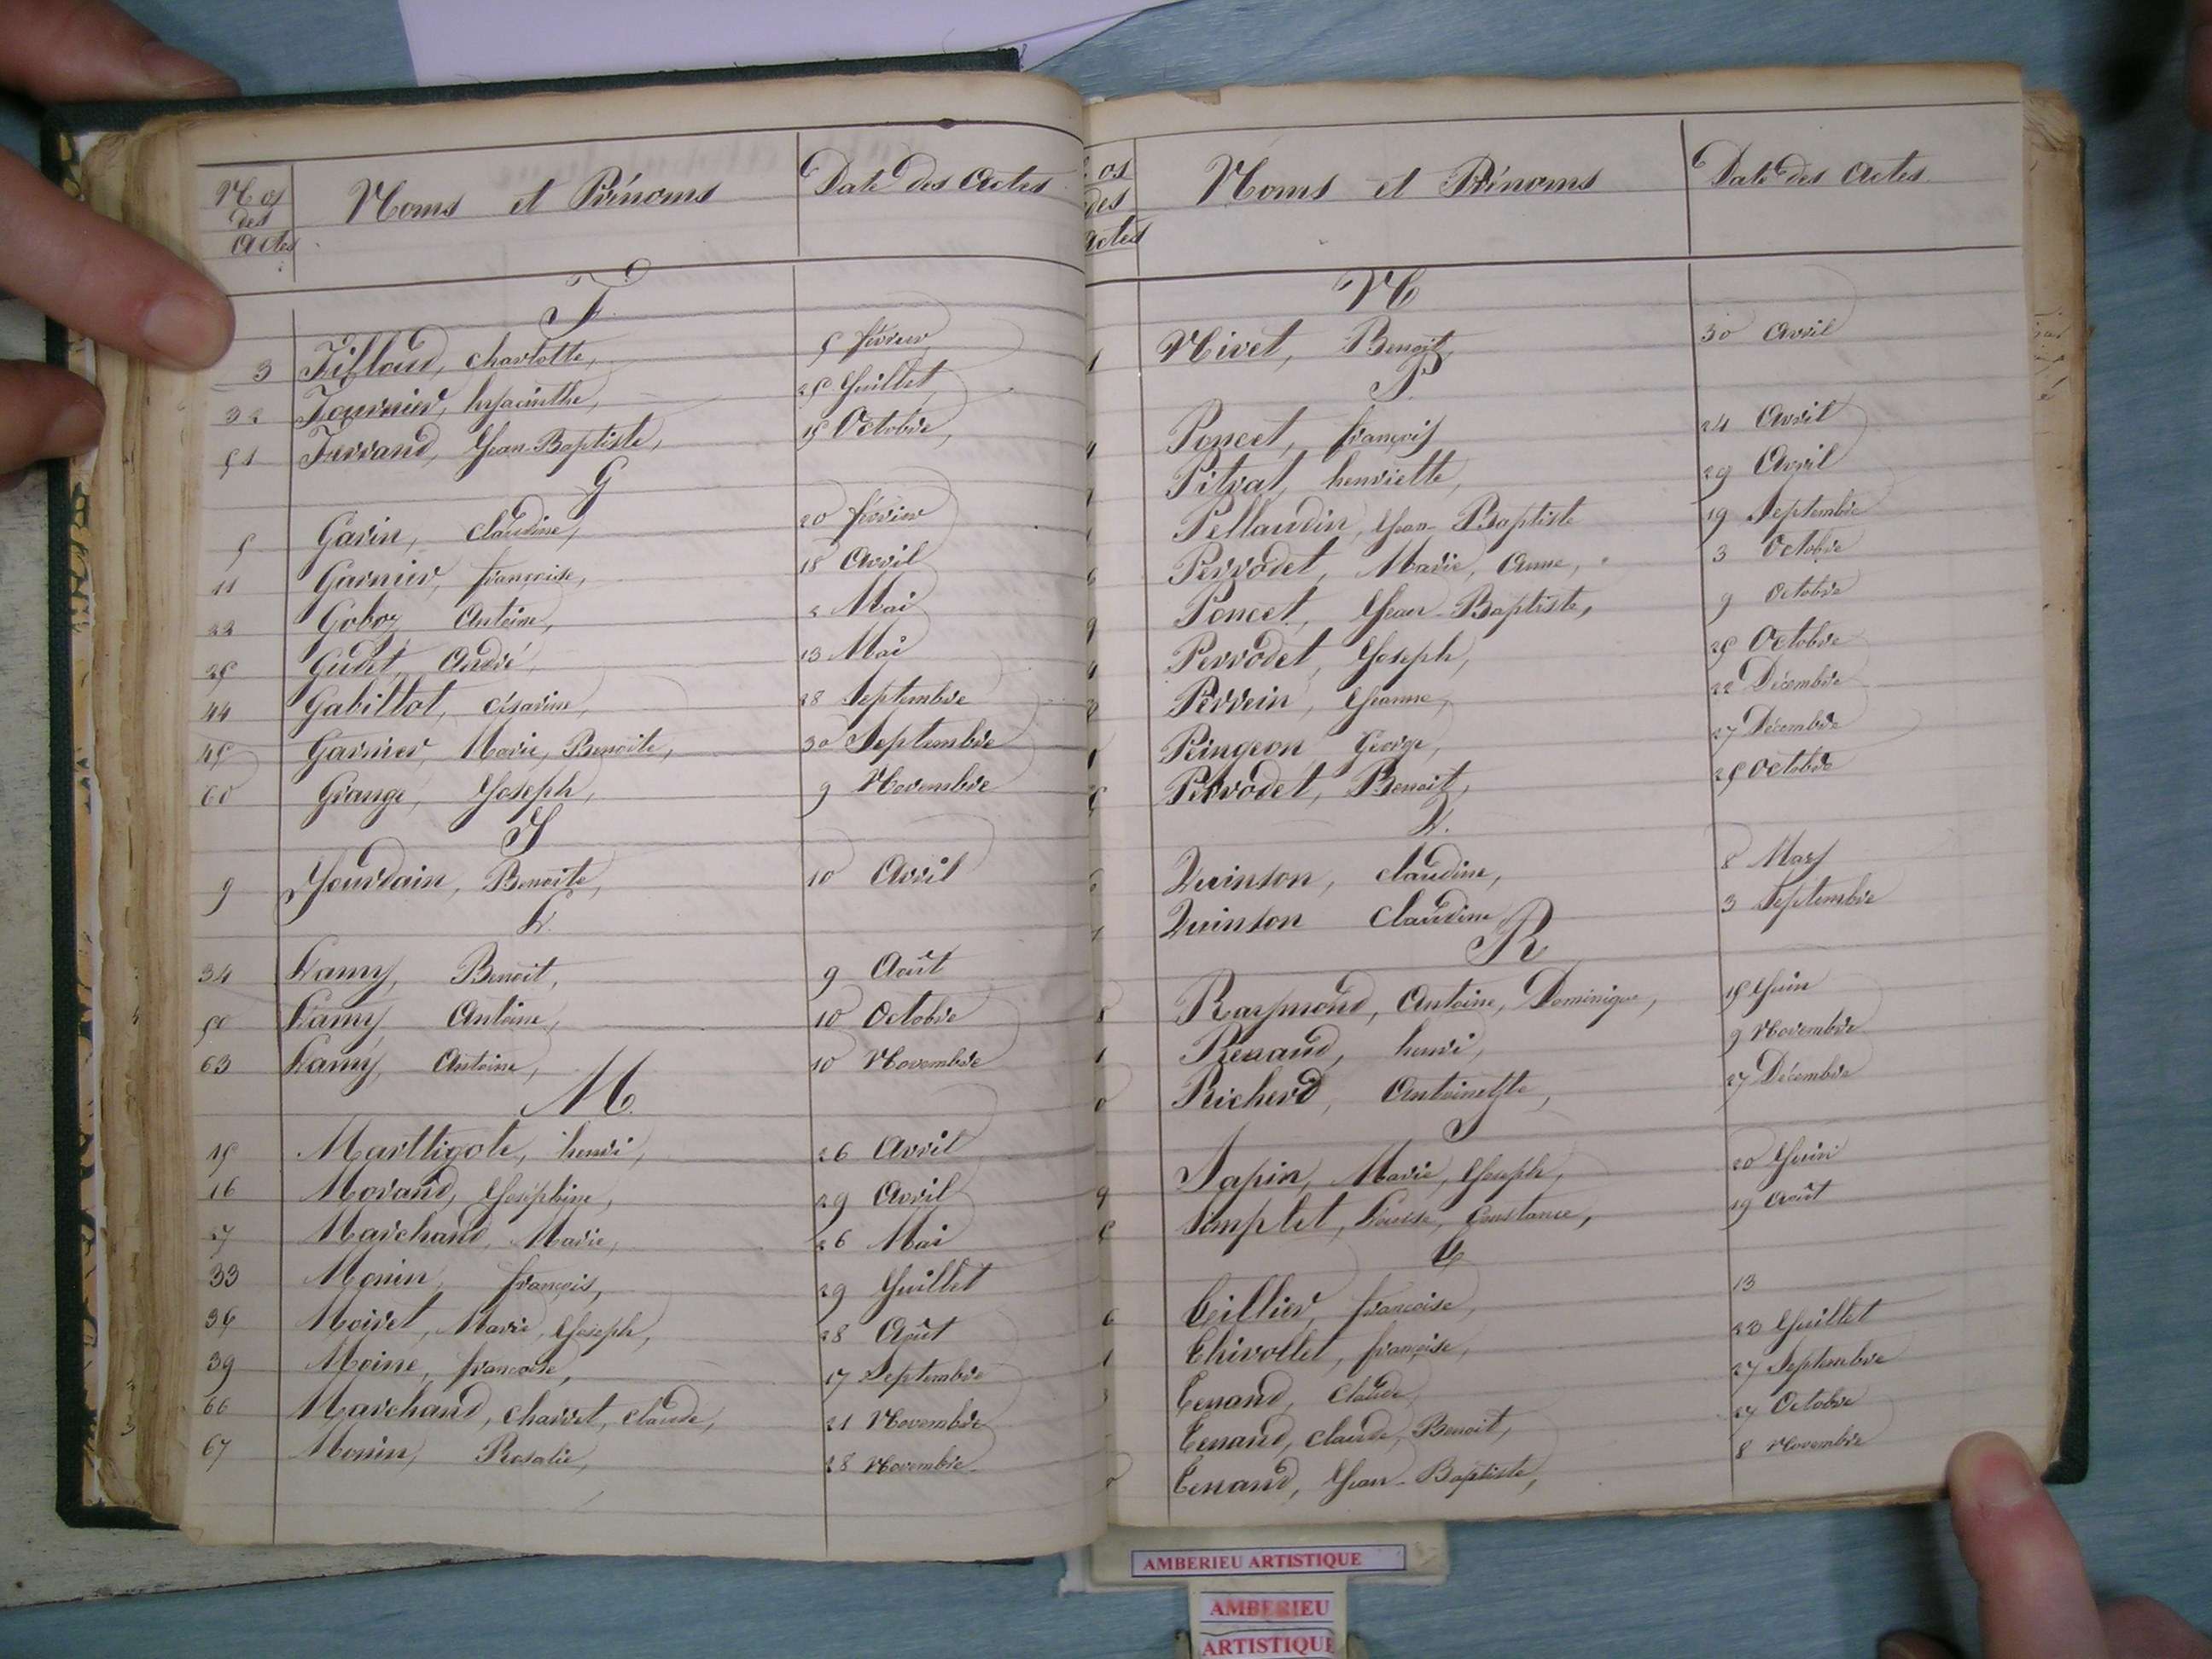 Nos des Actes Noms et Prénoms Date des Actes
F.
3 Fillard, charlotte, 5 février
32 Fournier, hyacinthe, 25 Juillet
51 Ferrand, Jean-Baptiste, 15 Octobre,
G
5 Gavin, Claudine, 20 février
11 Garnier, françoise, 18 Avril
22 Goboz Antoine, 2 Mai
25 Gudet, André, 13 Mai
44 Gabillot, césarine, 28 Septembre
45 Garnier, Marie, Benoite, 30 Septembre
60 Grange, Joseph, 9 Novembre
J
9 Jourdain, Benoite, 10 Avril
L.
34 Lamy, Benoit, 9 Août
50 Lamy Antoine, 10 Octobre
63 Lamy, Antoine, 10 Novembre
M.
15 Marttigote, henri, 26 Avril
16 Morand, Joséphine, 29 Avril
27 Marchand, Marie, 26 Mai
33 Monin, françois, 29 Juillet
36 Moiret, Marie, Joseph, 28 Août
39 Moine, françoise, 17 Septembre
66 Marchand, charvet, claude, 21 Novembre
67 Monin, Rosalie, 28 Novembre
os des Actes Noms et Prénoms Date des Actes
N
Nivet, Benoit, 30 Avril
P.
Poncet, françois 24 Avril
Pitrat, henriette, 29 Avril
Pellaudin, Jean-Baptiste 19 Septembre
Perrodet, Marie, Anne, 3 Octobre
Poncet, Jean-Baptiste, 9 Octobre
Perrodet, Joseph, 25 Octobre
Perrein, Jeanne, 22 Décembre
Pingeon, George, 27 Décembre
Perrodet, Benoit, 25 Octobre
Q.
Quinson, claudine, 8 Mars
Quinson Claudine 3 Septembre
R
Raymond, Antoine, Dominique, 15 Juin
Renaud, henri, 9 Novembre
Richerd, Antoinette, 27 Décembre
S
Sapin, Marie, Joseph, 20 Juin
Simplet, Louise, Constance, 19 Août
T
Tillier, françoise, 13
Thivollet, françoise, 23 Juillet
Tenand, Claude, 27 Septembre
Tenand, claude, Benoit, 27 Octobre
Tenand, Jean-Baptiste, 8 Novembre
AMBERIEU ARTISTIQUE
AMBERIEU
ARTISTIQUE